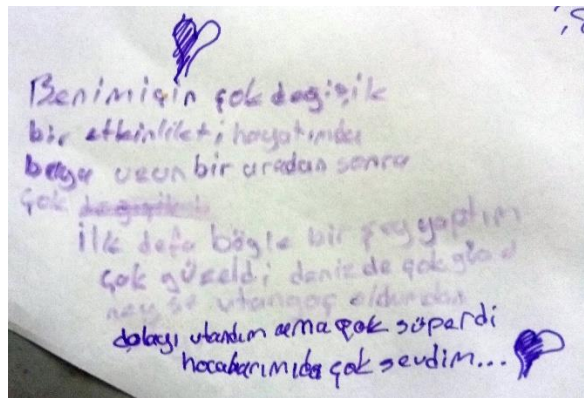 Benim için çok değişik
bir etkinlikti hayatımda
baya uzun bir aradan sonra
çok
ilk defa böyle bir şey yaptım
çok güzeldi deniz de çok güzel
neyse utangaç oldumdan
dolayı utandım ama çok süperdi
hocalarımıda çok sevdim...